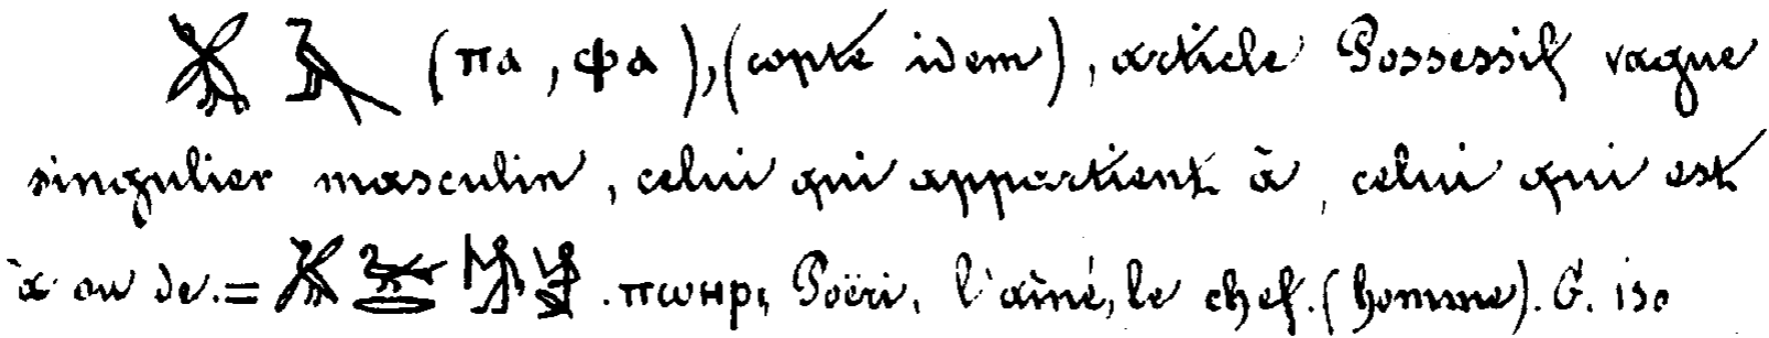 𓅯𓄿 (ⲡⲁ , ⲫⲁ ), (copte idem), article Possessif vague
singulier masculin, celui qui appartient à, celui qui est
à ou de. = . ⲡⲱⲏⲣⲓ, Poëri, l'aîné, le chef. (homme). G. 150